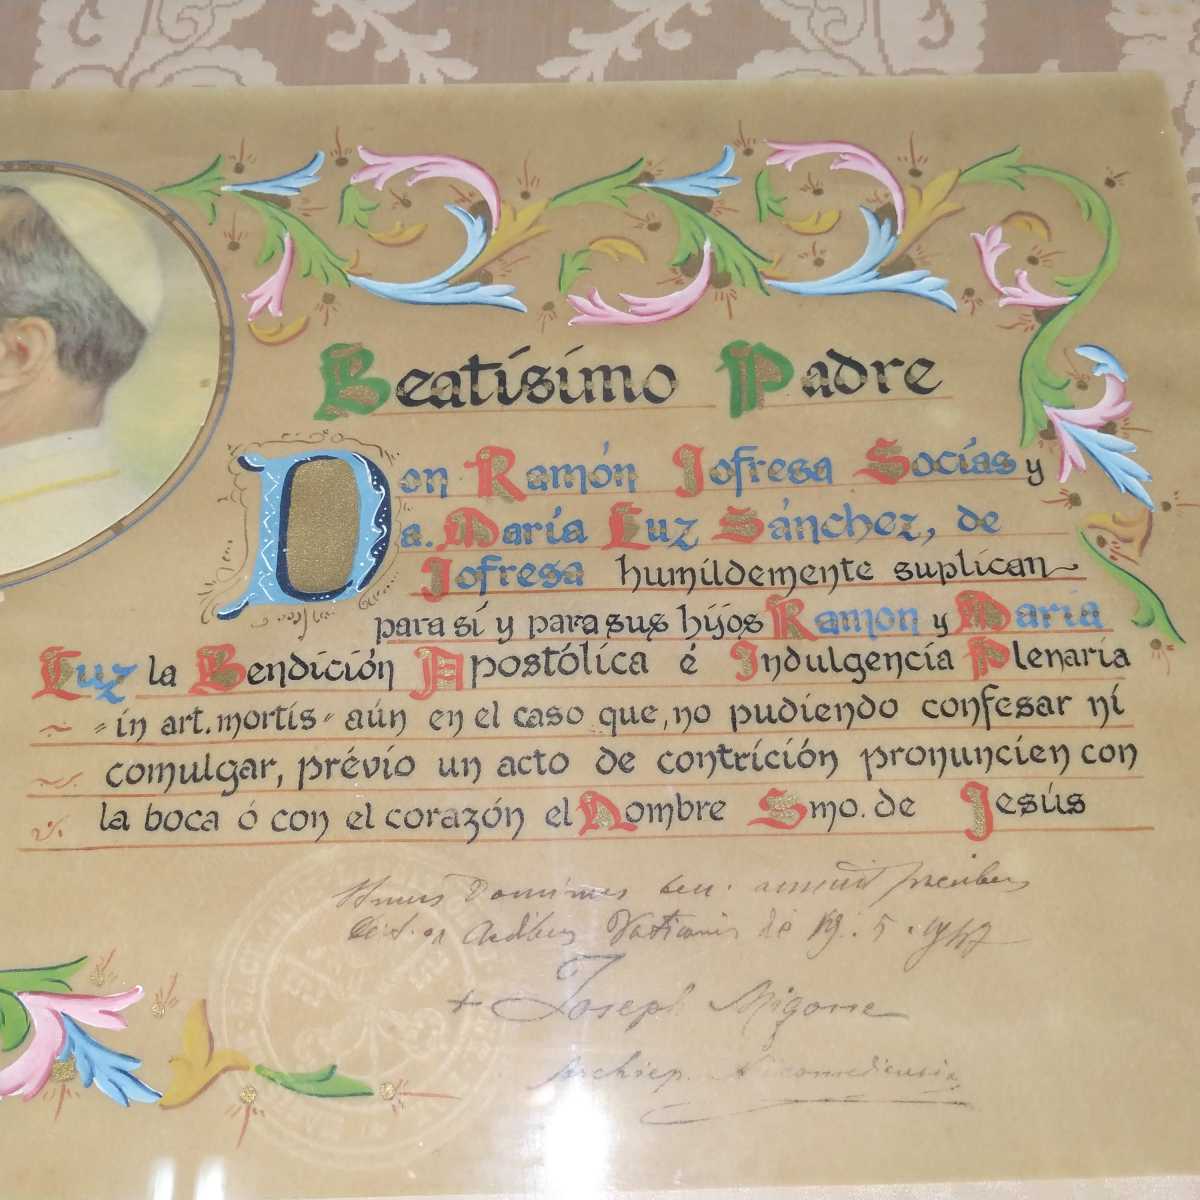 Beatísimo Padre
Don Ramón Jofresa Socías y
Da. María Luz Sánchez, de
Jofresa humildemente suplican
para sí y para sus hijos Ramon y María
Luz la Bendición Apostólica é Indulgencia Plenaria
"in art. mortis" aún en el caso que, no pudiendo confesar ni
comulgar, prévio un acto de contrición pronuncien con
la boca ó con el corazón el Nombre Smo. de Jesús
Dominus ben. annuit precibus
Aedibus Vaticanis die 19. 5. 1947
+ Joseph Migone
Archiep. Nicomediensis